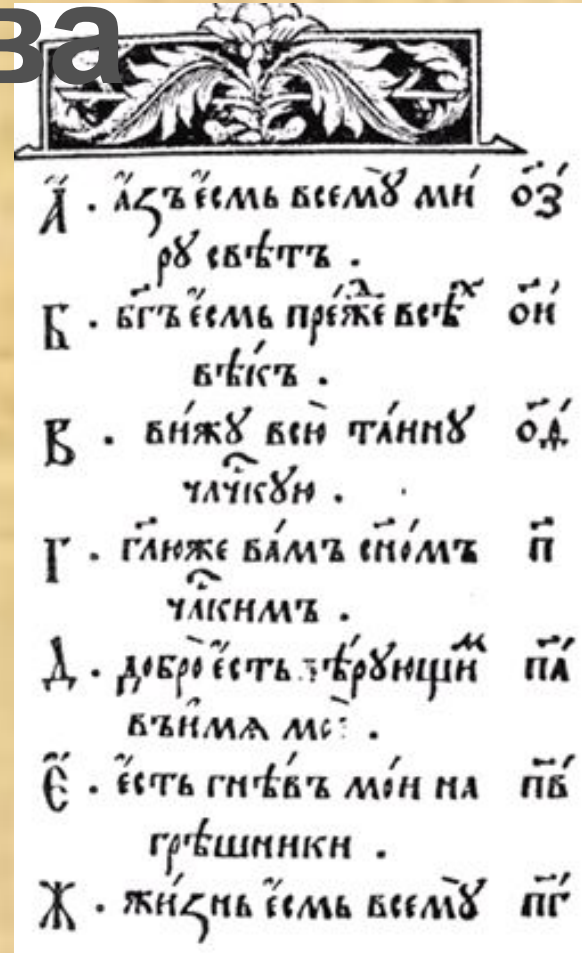 ва
А҃ . А҆́зъ є҆́смь всемꙋ̀ ми́ ѻ҃з
рꙋ свѣтъ .
Б . бг҃ъ є҆́смь пре́жⷣе всѣ́ⷯ ѻ҃и
вѣ́къ .
В . ви́жꙋ всю̀ та́инꙋ ѻ҃ѳ
члч҇кꙋю .
Г . гл҃юже ва́мъ сн҃о́мъ п҃
чл҇кимъ .
Д . добро̀ є҆́сть вѣ́рꙋющиⷨ п҃а
въи́мѧ моѐ .
Є . є҆́сть гнѣ́въ мо́и на п҃в
грѣшники .
Ж . жи́знь є҆́смь всемꙋ̀ п҃г